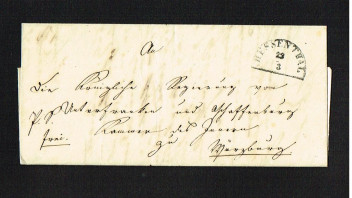 An
HESSENTHAL
23
3
Die Königliche Regierung von
P. S. Unterfranken und Aschaffenburg
frei. Kammer des Innern
zu
Würzburg